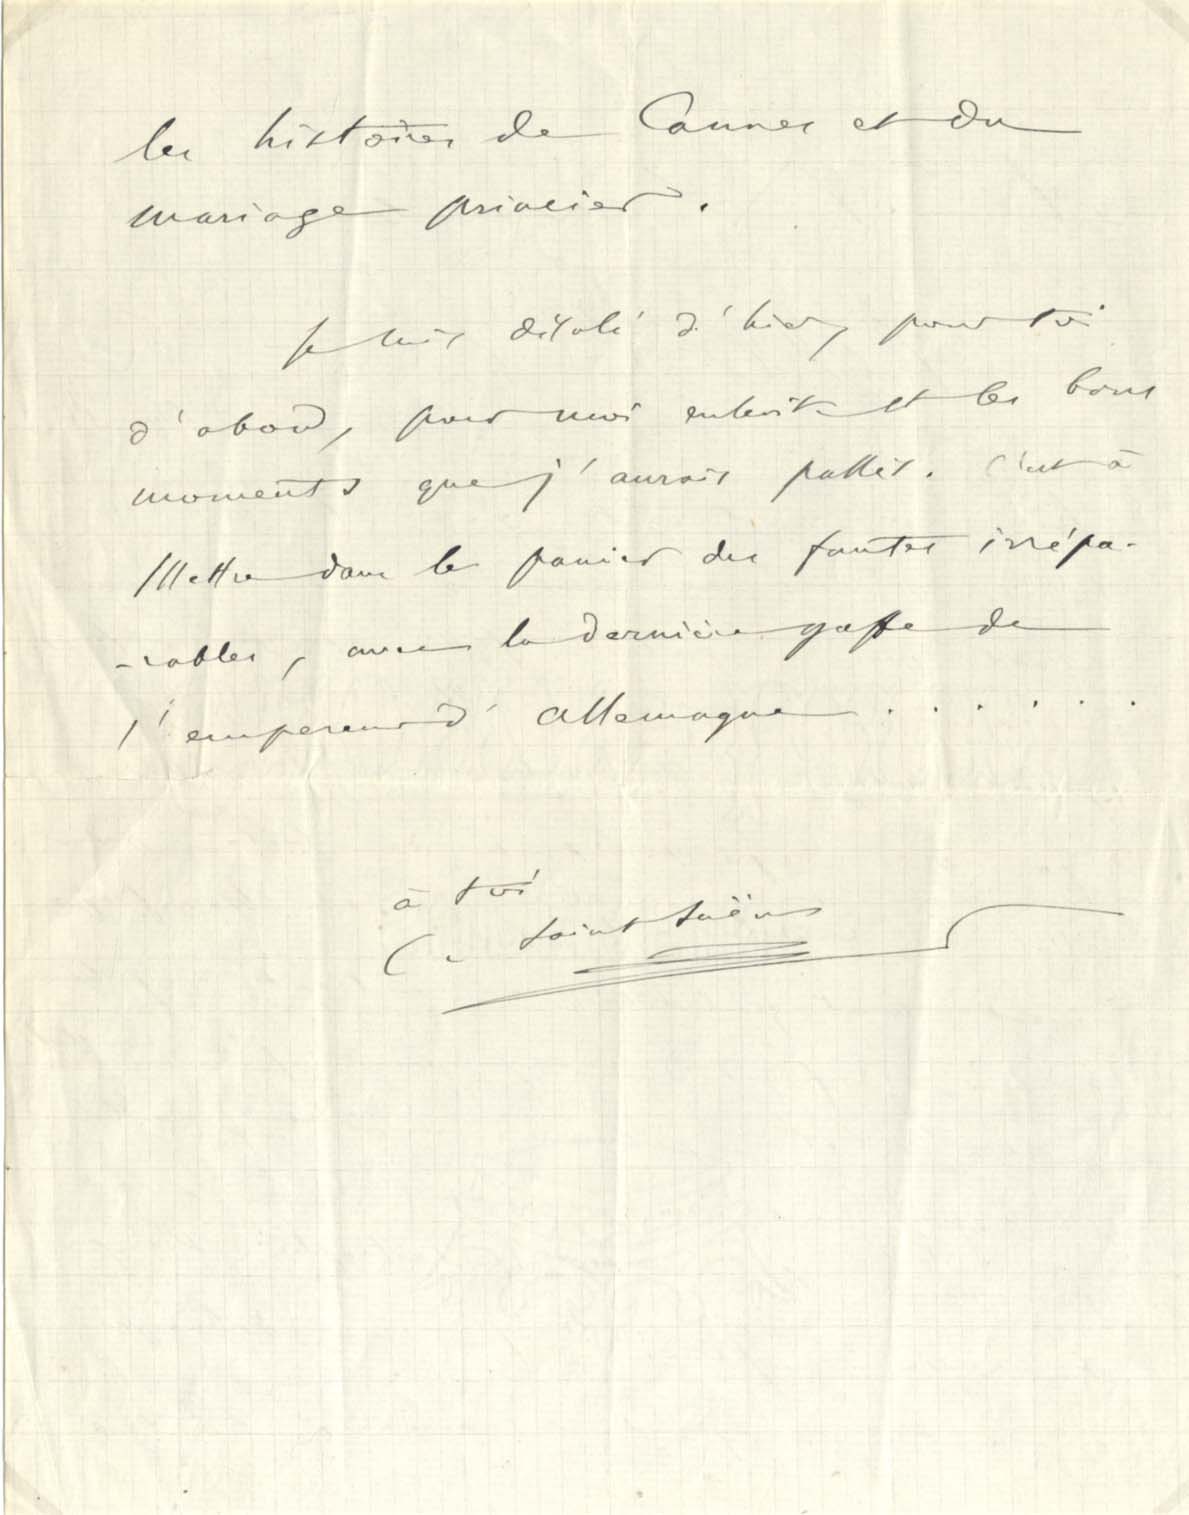 les histoires de Cannes et du
mariage princier.
Je suis désolé d'hier, pour toi
d'abord, pour moi ensuite et les bons
moments que j'aurais passés. C'est à
mettre dans le panier des fautes irrépa-
-rables, avec la dernière gaffe de
l'empereur d'Allemagne . . . . . .
à toi
C. Saint-Saëns